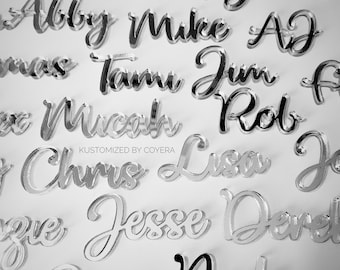 Abby Mike AJ
Tami Jim
Rob
Micah
KUSTOMIZED BY COYERA
Chris Lisa
Jesse Derek